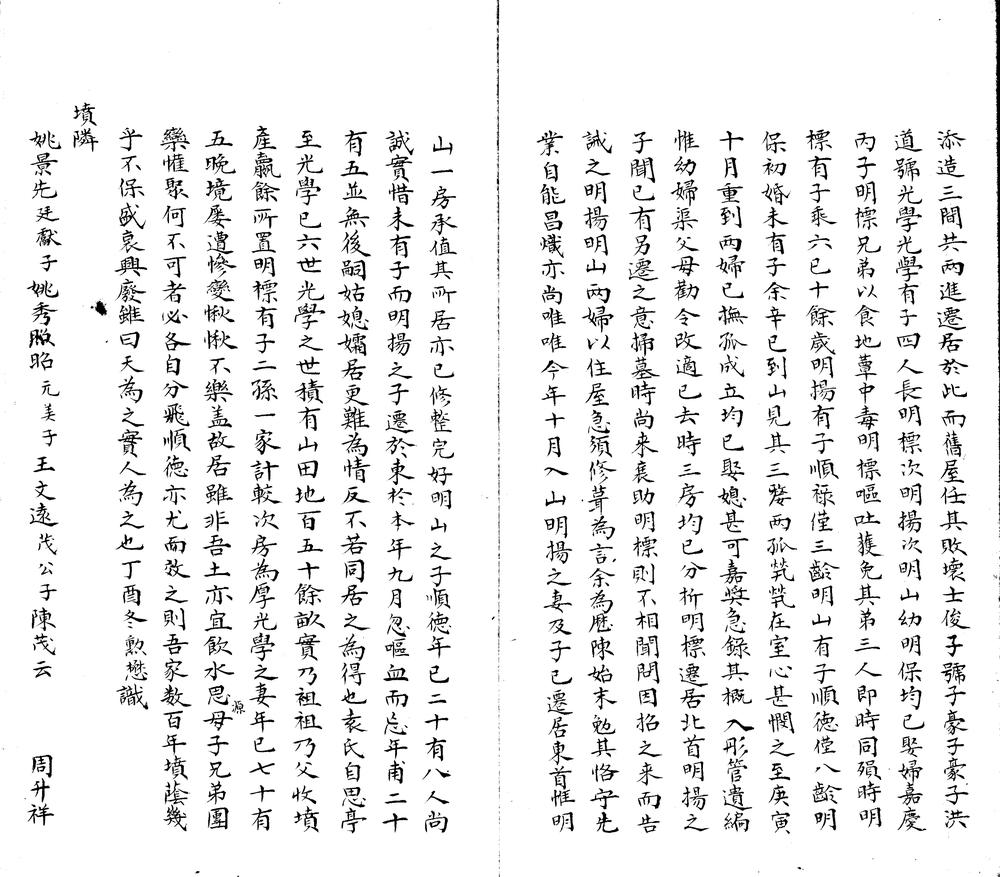 添造三間共兩進遷居於此而舊屋任其敗壞士俊子號子豪子豪子洪
道號光學光學有子四人長明標次明揚次明山幼明保均已娶婦嘉慶
丙子明標兄弟以食地蕈中毒明標嘔吐獲免其弟三人即時同殞時明
標有子乘六已十餘歲明揚有子順祿僅三齡明山有子順德僅八齡明
保初婚未有子余辛巳到山見其三嫠兩孤煢煢在室心甚憫之至庚寅
十月重到兩婦已撫孤成立均已娶媳甚可嘉獎急錄其概入彤管遺編
惟幼婦渠父母勸令改適已去時三房均已分析明標遷居北首明揚之
子聞已有另遷之意掃墓時尚来襄助明標則不相聞問因招之来而告
誡之明揚明山兩婦以住屋急須修葺為言余為歷陳始末勉其恪守先
業自能昌熾亦尚唯唯今年十月入山明揚之妻及子已遷居東首惟明
山一房承值其所居亦已修整完好明山之子順德年已二十有八人尚
誠實惜未有子而明揚之子遷於東於本年九月忽嘔血而亡年甫二十
有五並無後嗣姑媳孀居更難為情反不若同居之為得也袁氏自思亭
至光學已六世光學之世積有山田地百五十餘畝實乃祖祖乃父收墳
產贏餘所置明標有子二孫一家計較次房為厚光學之妻年已七十有
五晚境屢遭慘變愀愀不樂盖故居雖非吾土亦宜飲水思源母子兄弟團
欒惟聚何不可者必各自分飛順德亦尤而效之則吾家数百年墳蔭幾
乎不保盛衰興廢雖曰天為之實人為之也丁酉冬勲懋識
墳隣
姚景先廷獻子姚秀殿昭元美子王文遠茂公子陳茂云 周升祥